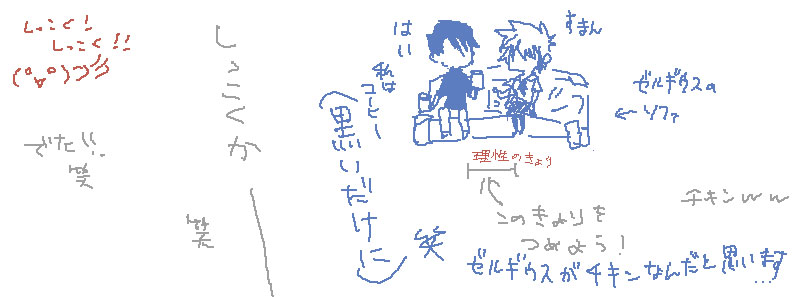 しっこく!
しっこく!!
(°∀°)つ彡
でた!!
笑
しっこくかー
笑
はい
私は
コーヒー
(黒いだけに)
笑
すまん
ゼルギウスの
←ソファ
理性のきょり
このきょりを
つめよう!
チキンww
ゼルギウスがチキンなんだと思います
…